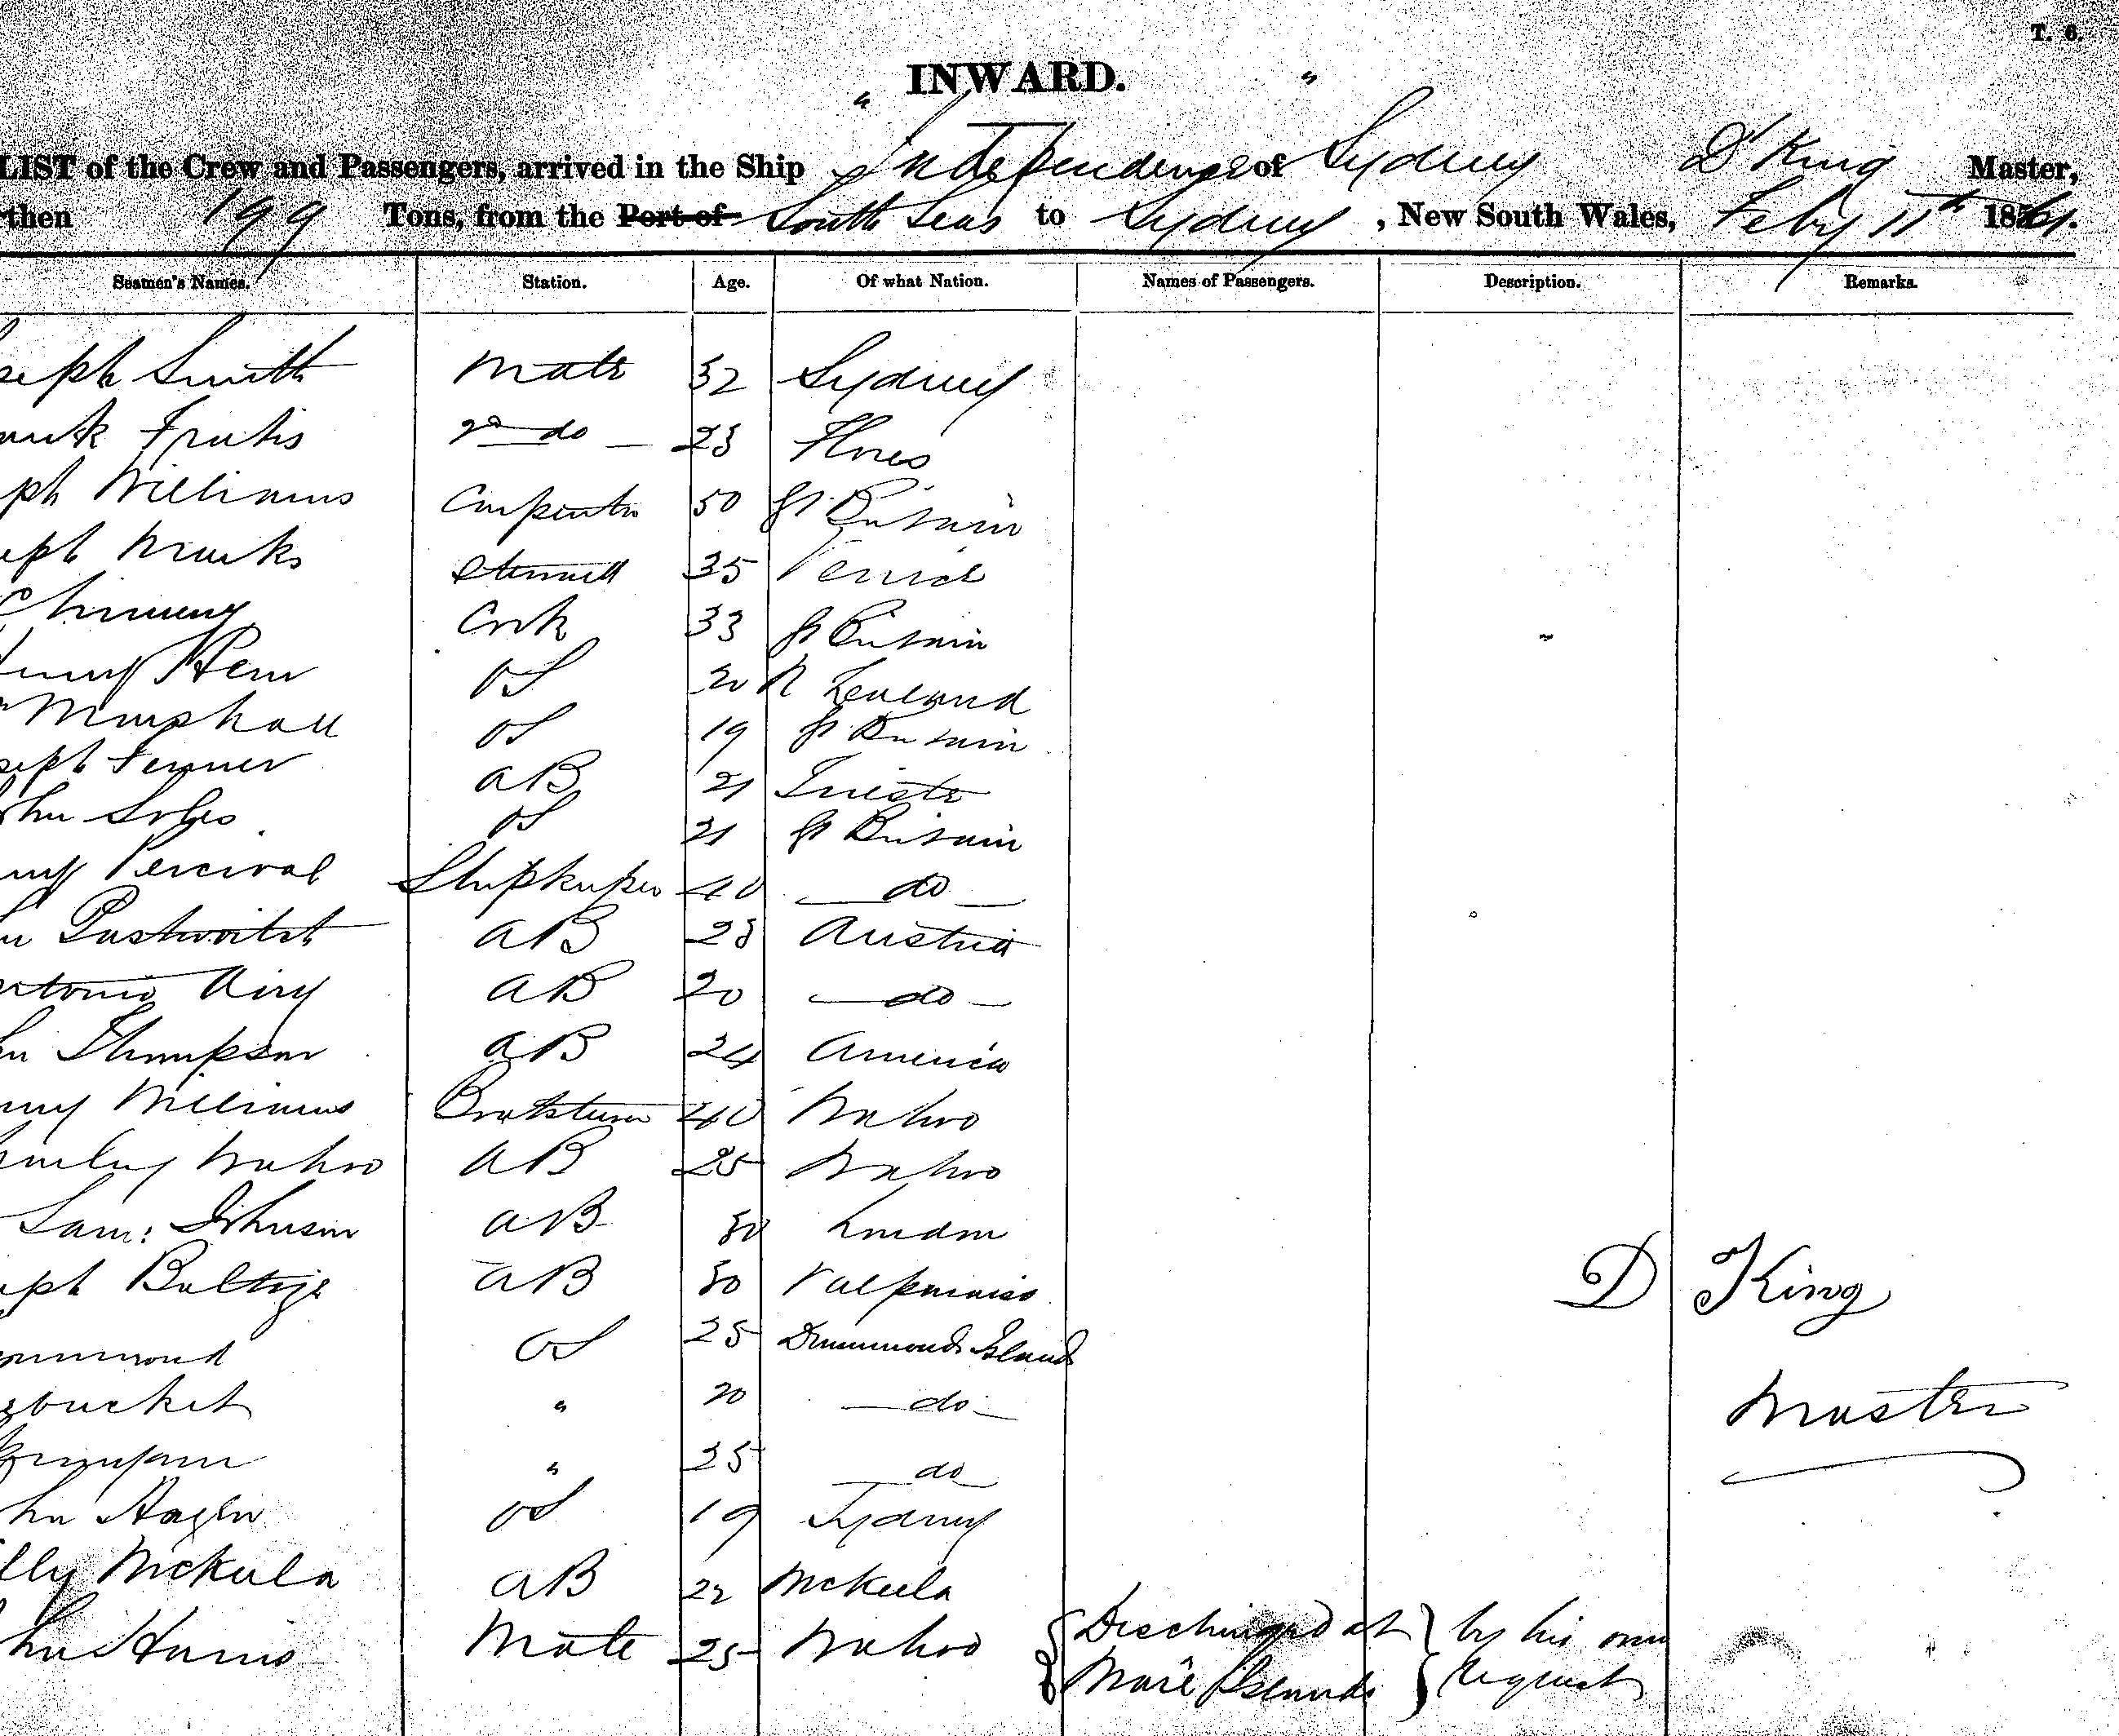 T. 6.
INWARD.
LIST of the Crew and Passengers, arrived in the Ship "Independence" of Sydney D King Master,
then 199 Tons, from the Port of South Seas to Sydney, New South Wales, Feby 11th 1861.
Seamen's Names. Station. Age. Of what Nation. Names of Passengers. Description. Remarks.
seph Smith Mate 32 Sydney
2nd do 23 Flores
ph Williams Carpenter 50 Gt Britain
eph Marks Steward 35 Venice
Cook 33 Gt Britain
OS 20 N Zealand
Marshall OS 19 Gt Britain
seph Fenner AB 21 Trieste
ohn OS 21 Gt Britain
Percival Shipkeeper 40 do
AB 28 Austria
ntonio AB 20 do
hn Thompson AB 24 America
nry Williams Boatsteerer 40 Mahoo
Mahoo AB 25 Mahoo
Sam: Johnson AB 30 London
eph AB 30 Valparaiso
OS 25 Drummonds Island
bucket " 20 do
" 25 do
hn OS 19 Sydney
illy McKeela AB 22 McKeela
hn Harris Mate 25 Mahoo { Discharged at } by his own
Mare Islands request
D King
Master